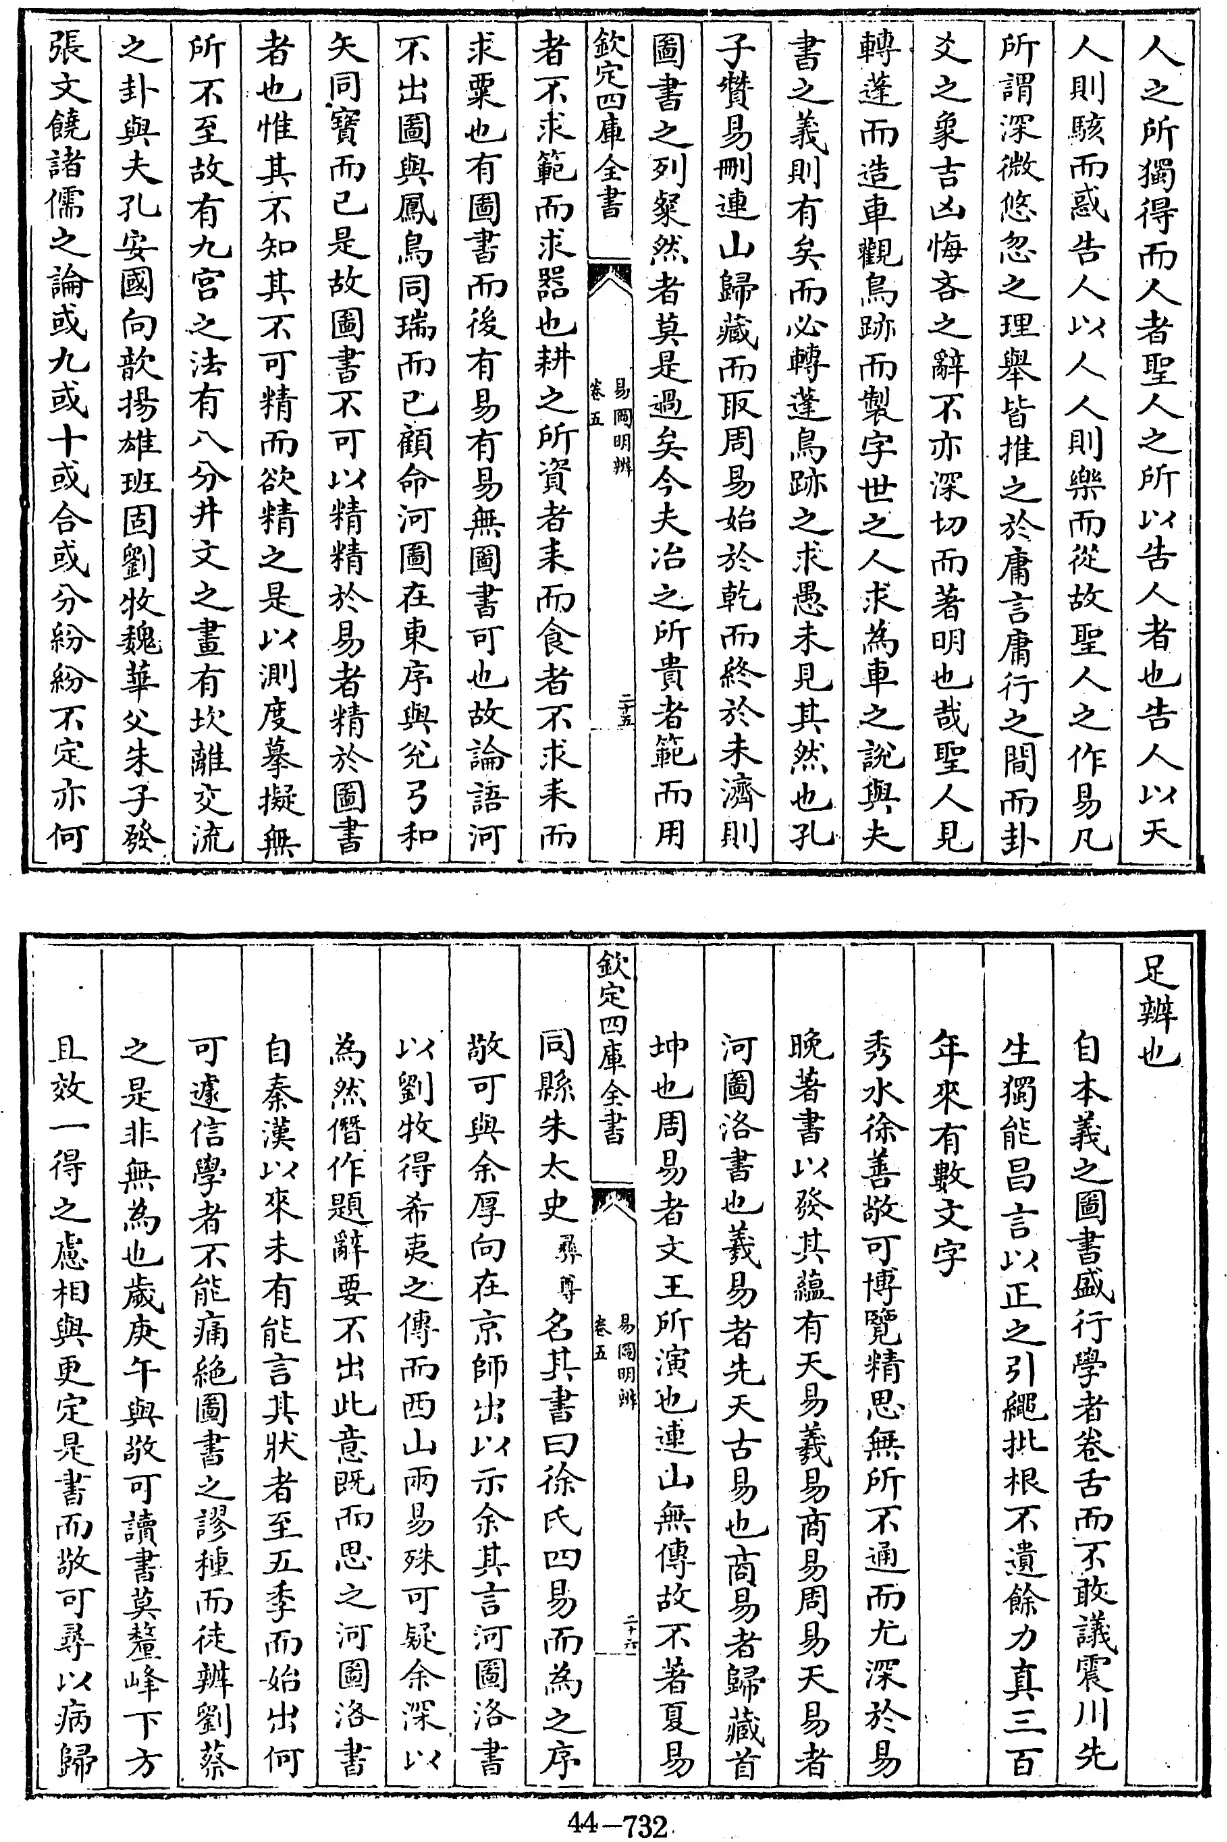 人之所獨得而人者聖人之所以告人者也告人以天
人則駭而惑告人以人人則樂而從故聖人之作易凡
所謂深微悠忽之理舉皆推之於庸言庸行之間而卦
爻之象吉凶悔吝之辭不亦深切而著明也哉聖人見
轉蓬而造車觀鳥跡而製字世之人求為車之說與夫
書之義則有矣而必轉蓬鳥跡之求愚未見其然也孔
子贊易刪連山歸藏而取周易始於乾而終於未濟則
圖書之列粲然者莫是過矣今夫冶之所貴者範而用
欽定四庫全書
易圖明辨
卷五
二十五
者不求範而求器也耕之所資者耒而食者不求耒而
求粟也有圖書而後有易有易無圖書可也故論語河
不出圖與鳳鳥同瑞而已顧命河圖在東序與兊弓和
矢同寶而已是故圖書不可以精精於易者精於圖書
者也惟其不知其不可精而欲精之是以測度摹擬無
所不至故有九宮之法有八分井文之畫有坎離交流
之卦與夫孔安國向歆揚雄班固劉牧魏華父朱子發
張文饒諸儒之論或九或十或合或分紛紛不定亦何
足辨也
自本義之圖書盛行學者卷舌而不敢議震川先
生獨能昌言以正之引繩批根不遺餘力真三百
年來有數文字
秀水徐善敬可博覽精思無所不通而尤深於易
晚著書以發其蘊有天易羲易商易周易天易者
河圖洛書也羲易者先天古易也商易者歸藏首
坤也周易者文王所演也連山無傳故不著夏易
欽定四庫全書
易圖明辨
卷五
二十六
同縣朱太史彞尊名其書曰徐氏四易而為之序
敬可與余厚向在京師出以示余其言河圖洛書
以劉牧得希夷之傳而西山兩易殊可疑余深以
為然僭作題辭要不出此意既而思之河圖洛書
自秦漢以來未有能言其狀者至五季而始出何
可遽信學者不能痛絕圖書之謬種而徒辨劉蔡
之是非無為也歲庚午與敬可讀書莫釐峰下方
且效一得之慮相與更定是書而敬可尋以病歸
44-732